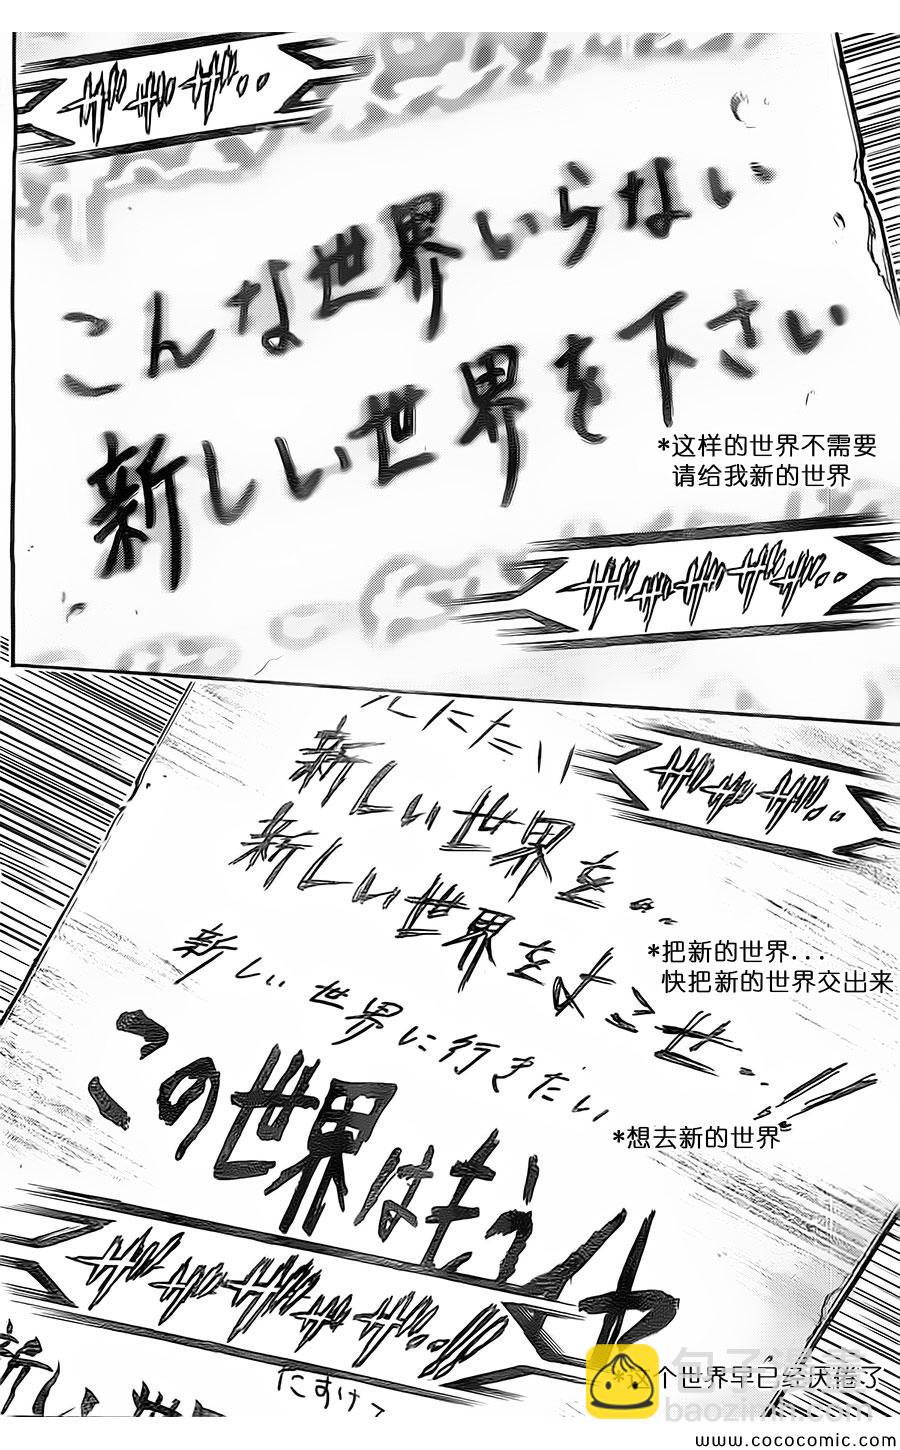 ザザザ..
こんな世界いらない
新しい世界を下さい
*这样的世界不需要
请给我新的世界
ザザザザザ..
新しい世界を..
ザザザザ..
新しい世界をよこせ..!!
*把新的世界...
快把新的世界交出来
新しい世界に行きたい
*想去新的世界
この世界はもうイヤ
ザザザザザ..
新しい世界
たすけて
*这个世界早已经厌倦了
包子漫畫
baozimh.com
www.cococomic.com